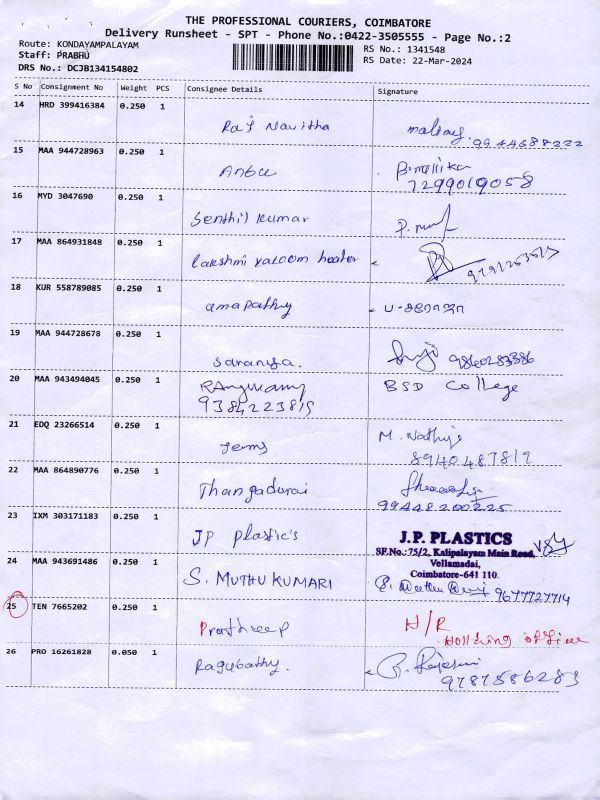 THE PROFESSIONAL COURIERS, COIMBATORE
Delivery Runsheet - SPT - Phone No.:0422-3505555 - Page No.:2
Route: KONDAYAMPALAYAM RS No.: 1341548
Staff: PRABHU RS Date: 22-Mar-2024
DRS No.: DCJB134154802
S No Consignment No Weight PCS Consignee Details Signature
14 HRD 399416384 0.250 1
Raj Navitha 9944688222
15 MAA 944728963 0.250 1
Anbu B.mallika
7299019058
16 MYD 3047690 0.250 1
Senthil kumar
17 MAA 864931848 0.250 1
Lakshmi vacoom heater
18 KUR 558789085 0.250 1
amapathy
19 MAA 944728678 0.250 1
Saranya. 9860283386
20 MAA 943494045 0.250 1 BSD College
9384223819
21 EDQ 23266514 0.250 1
Jems M. Nathiya
8940487819
22 MAA 864890776 0.250 1
Thangadurai
99448200225
23 IXM 303171183 0.250 1
JP plastic's J.P. PLASTICS
SF.No.:75/2, Kalipalayam Main Road,
Vellamadai,
Coimbatore-641 110.
24 MAA 943691486 0.250 1
S. MUTHU KUMARI 9677727714
25 TEN 7665202 0.250 1
Pratheep H/R
Holding officer
26 PRO 16261828 0.050 1
Ragubathy. R. Rajeswi
9787586283